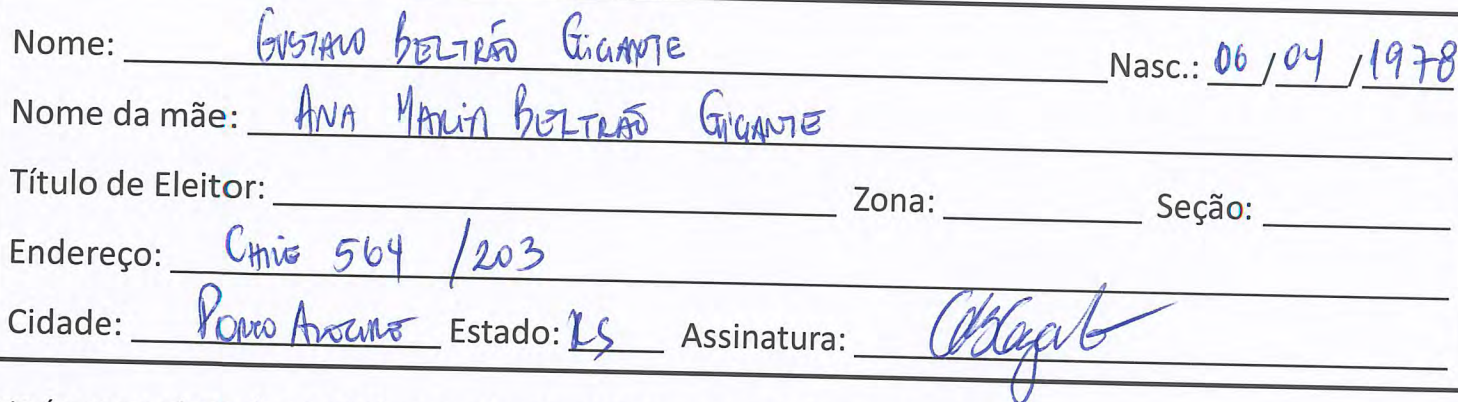 Nome: GUSTAVO BELTRÃO GIGANTE Nasc.: 06/04/1978
Nome da mãe: ANA MARIA BELTRÃO GIGANTE
Título de Eleitor: Zona: Seção:
Endereço: CHILE 564 /203
Cidade: PORTO ALEGRE Estado: RS Assinatura: